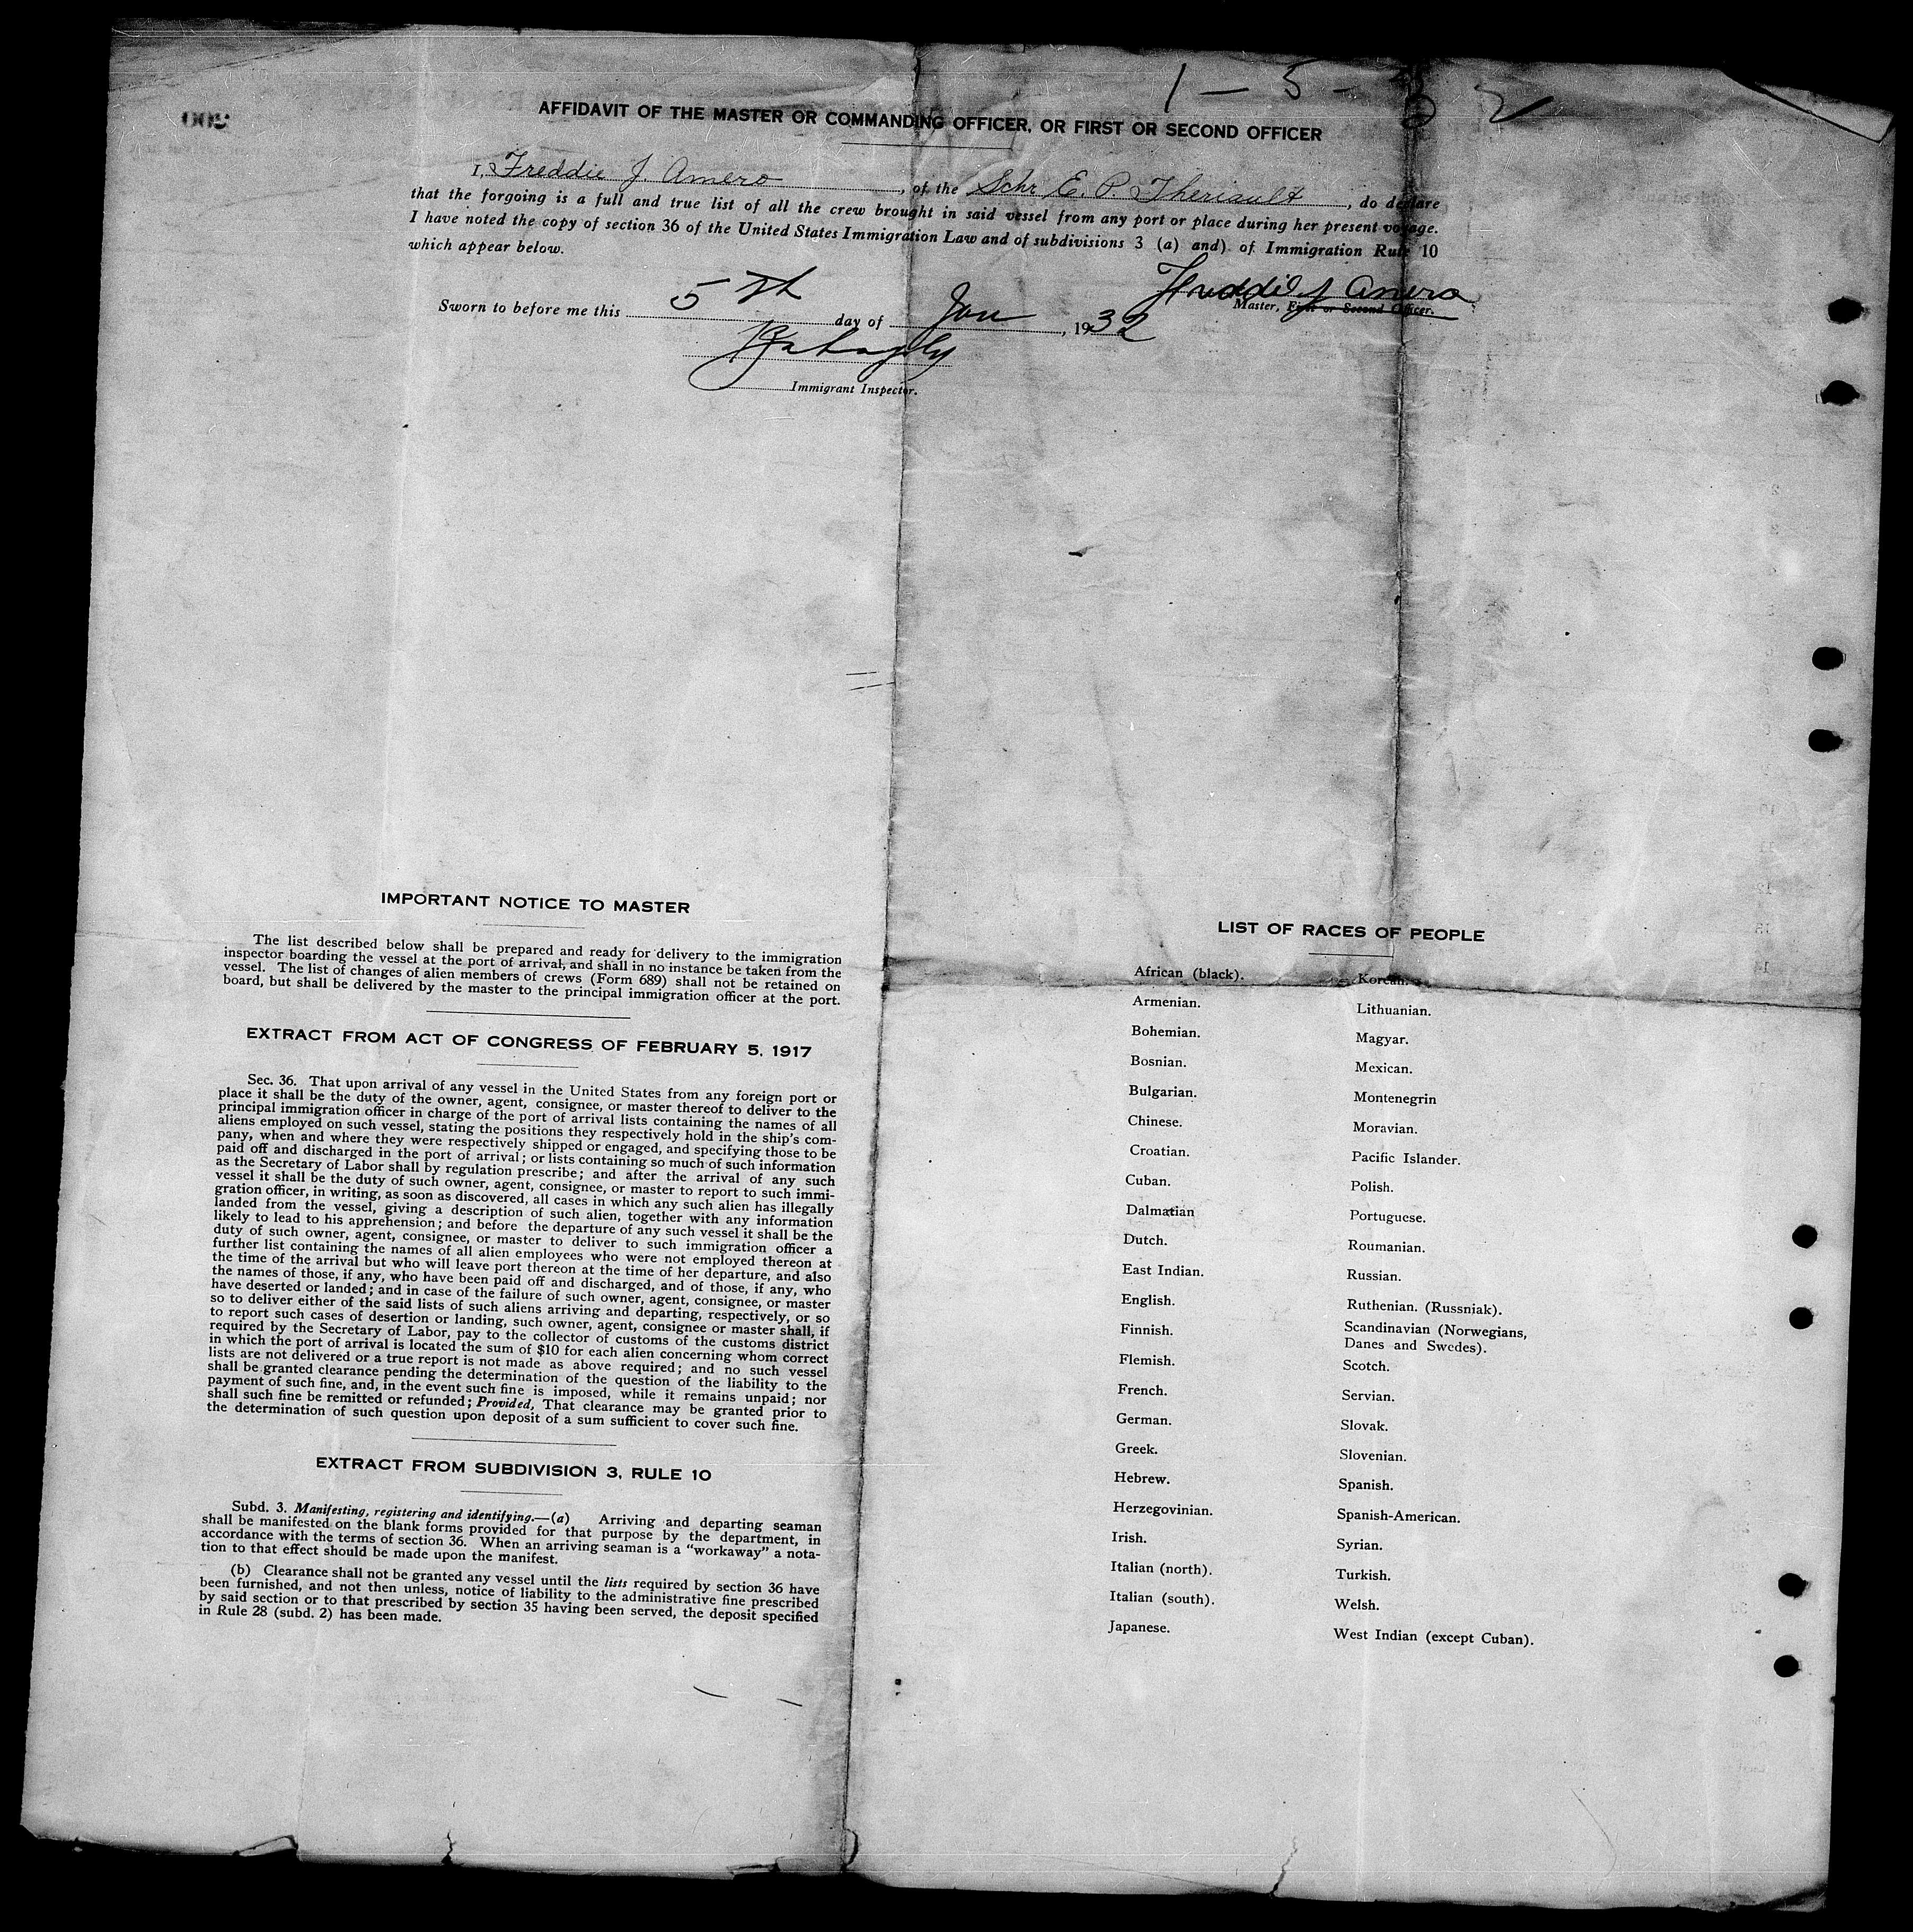 1 - 5 - 32
AFFIDAVIT OF THE MASTER OR COMMANDING OFFICER, OR FIRST OR SECOND OFFICER
I, Freddie J. Amero, of the Schr E. P. Theriault, do declare
that the forgoing is a full and true list of all the crew brought in said vessel from any port or place during her present voyage.
I have noted the copy of section 36 of the United States Immigration Law and of subdivisions 3 (a) and) of Immigration Rule 10
which appear below.
Freddie J Amero
Master, First or Second Officer.
Sworn to before me this 5 th day of Jan, 1932
Immigrant Inspector.
IMPORTANT NOTICE TO MASTER
The list described below shall be prepared and ready for delivery to the immigration
inspector boarding the vessel at the port of arrival, and shall in no instance be taken from the
vessel. The list of changes of alien members of crews (Form 689) shall not be retained on
board, but shall be delivered by the master to the principal immigration officer at the port.
EXTRACT FROM ACT OF CONGRESS OF FEBRUARY 5, 1917
Sec. 36. That upon arrival of any vessel in the United States from any foreign port or
place it shall be the duty of the owner, agent, consignee, or master thereof to deliver to the
principal immigration officer in charge of the port of arrival lists containing the names of all
aliens employed on such vessel, stating the positions they respectively hold in the ship's com-
pany, when and where they were respectively shipped or engaged, and specifying those to be
paid off and discharged in the port of arrival; or lists containing so much of such information
as the Secretary of Labor shall by regulation prescribe; and after the arrival of any such
vessel it shall be the duty of such owner, agent, consignee, or master to report to such immi-
gration officer, in writing, as soon as discovered, all cases in which any such alien has illegally
landed from the vessel, giving a description of such alien, together with any information
likely to lead to his apprehension; and before the departure of any such vessel it shall be the
duty of such owner, agent, consignee, or master to deliver to such immigration officer a
further list containing the names of all alien employees who were not employed thereon at
the time of the arrival but who will leave port thereon at the time of her departure, and also
the names of those, if any, who have been paid off and discharged, and of those, if any, who
have deserted or landed; and in case of the failure of such owner, agent, consignee, or master
so to deliver either of the said lists of such aliens arriving and departing, respectively, or so
to report such cases of desertion or landing, such owner, agent, consignee or master shall, if
required by the Secretary of Labor, pay to the collector of customs of the customs district
in which the port of arrival is located the sum of $10 for each alien concerning whom correct
lists are not delivered or a true report is not made as above required; and no such vessel
shall be granted clearance pending the determination of the question of the liability to the
payment of such fine, and, in the event such fine is imposed, while it remains unpaid; nor
shall such fine be remitted or refunded; Provided, That clearance may be granted prior to
the determination of such question upon deposit of a sum sufficient to cover such fine.
EXTRACT FROM SUBDIVISION 3, RULE 10
Subd. 3. Manifesting, registering and identifying.—(a) Arriving and departing seaman
shall be manifested on the blank forms provided for that purpose by the department, in
accordance with the terms of section 36. When an arriving seaman is a "workaway" a nota-
tion to that effect should be made upon the manifest.
(b) Clearance shall not be granted any vessel until the lists required by section 36 have
been furnished, and not then unless, notice of liability to the administrative fine prescribed
by said section or to that prescribed by section 35 having been served, the deposit specified
in Rule 28 (subd. 2) has been made.
LIST OF RACES OF PEOPLE
African (black).
Armenian.
Bohemian.
Bosnian.
Bulgarian.
Chinese.
Croatian.
Cuban.
Dalmatian
Dutch.
East Indian.
English.
Finnish.
Flemish.
French.
German.
Greek.
Hebrew.
Herzegovinian.
Irish.
Italian (north).
Italian (south).
Japanese.
Korean.
Lithuanian.
Magyar.
Mexican.
Montenegrin
Moravian.
Pacific Islander.
Polish.
Portuguese.
Roumanian.
Russian.
Ruthenian. (Russniak).
Scandinavian (Norwegians,
Danes and Swedes).
Scotch.
Servian.
Slovak.
Slovenian.
Spanish.
Spanish-American.
Syrian.
Turkish.
Welsh.
West Indian (except Cuban).